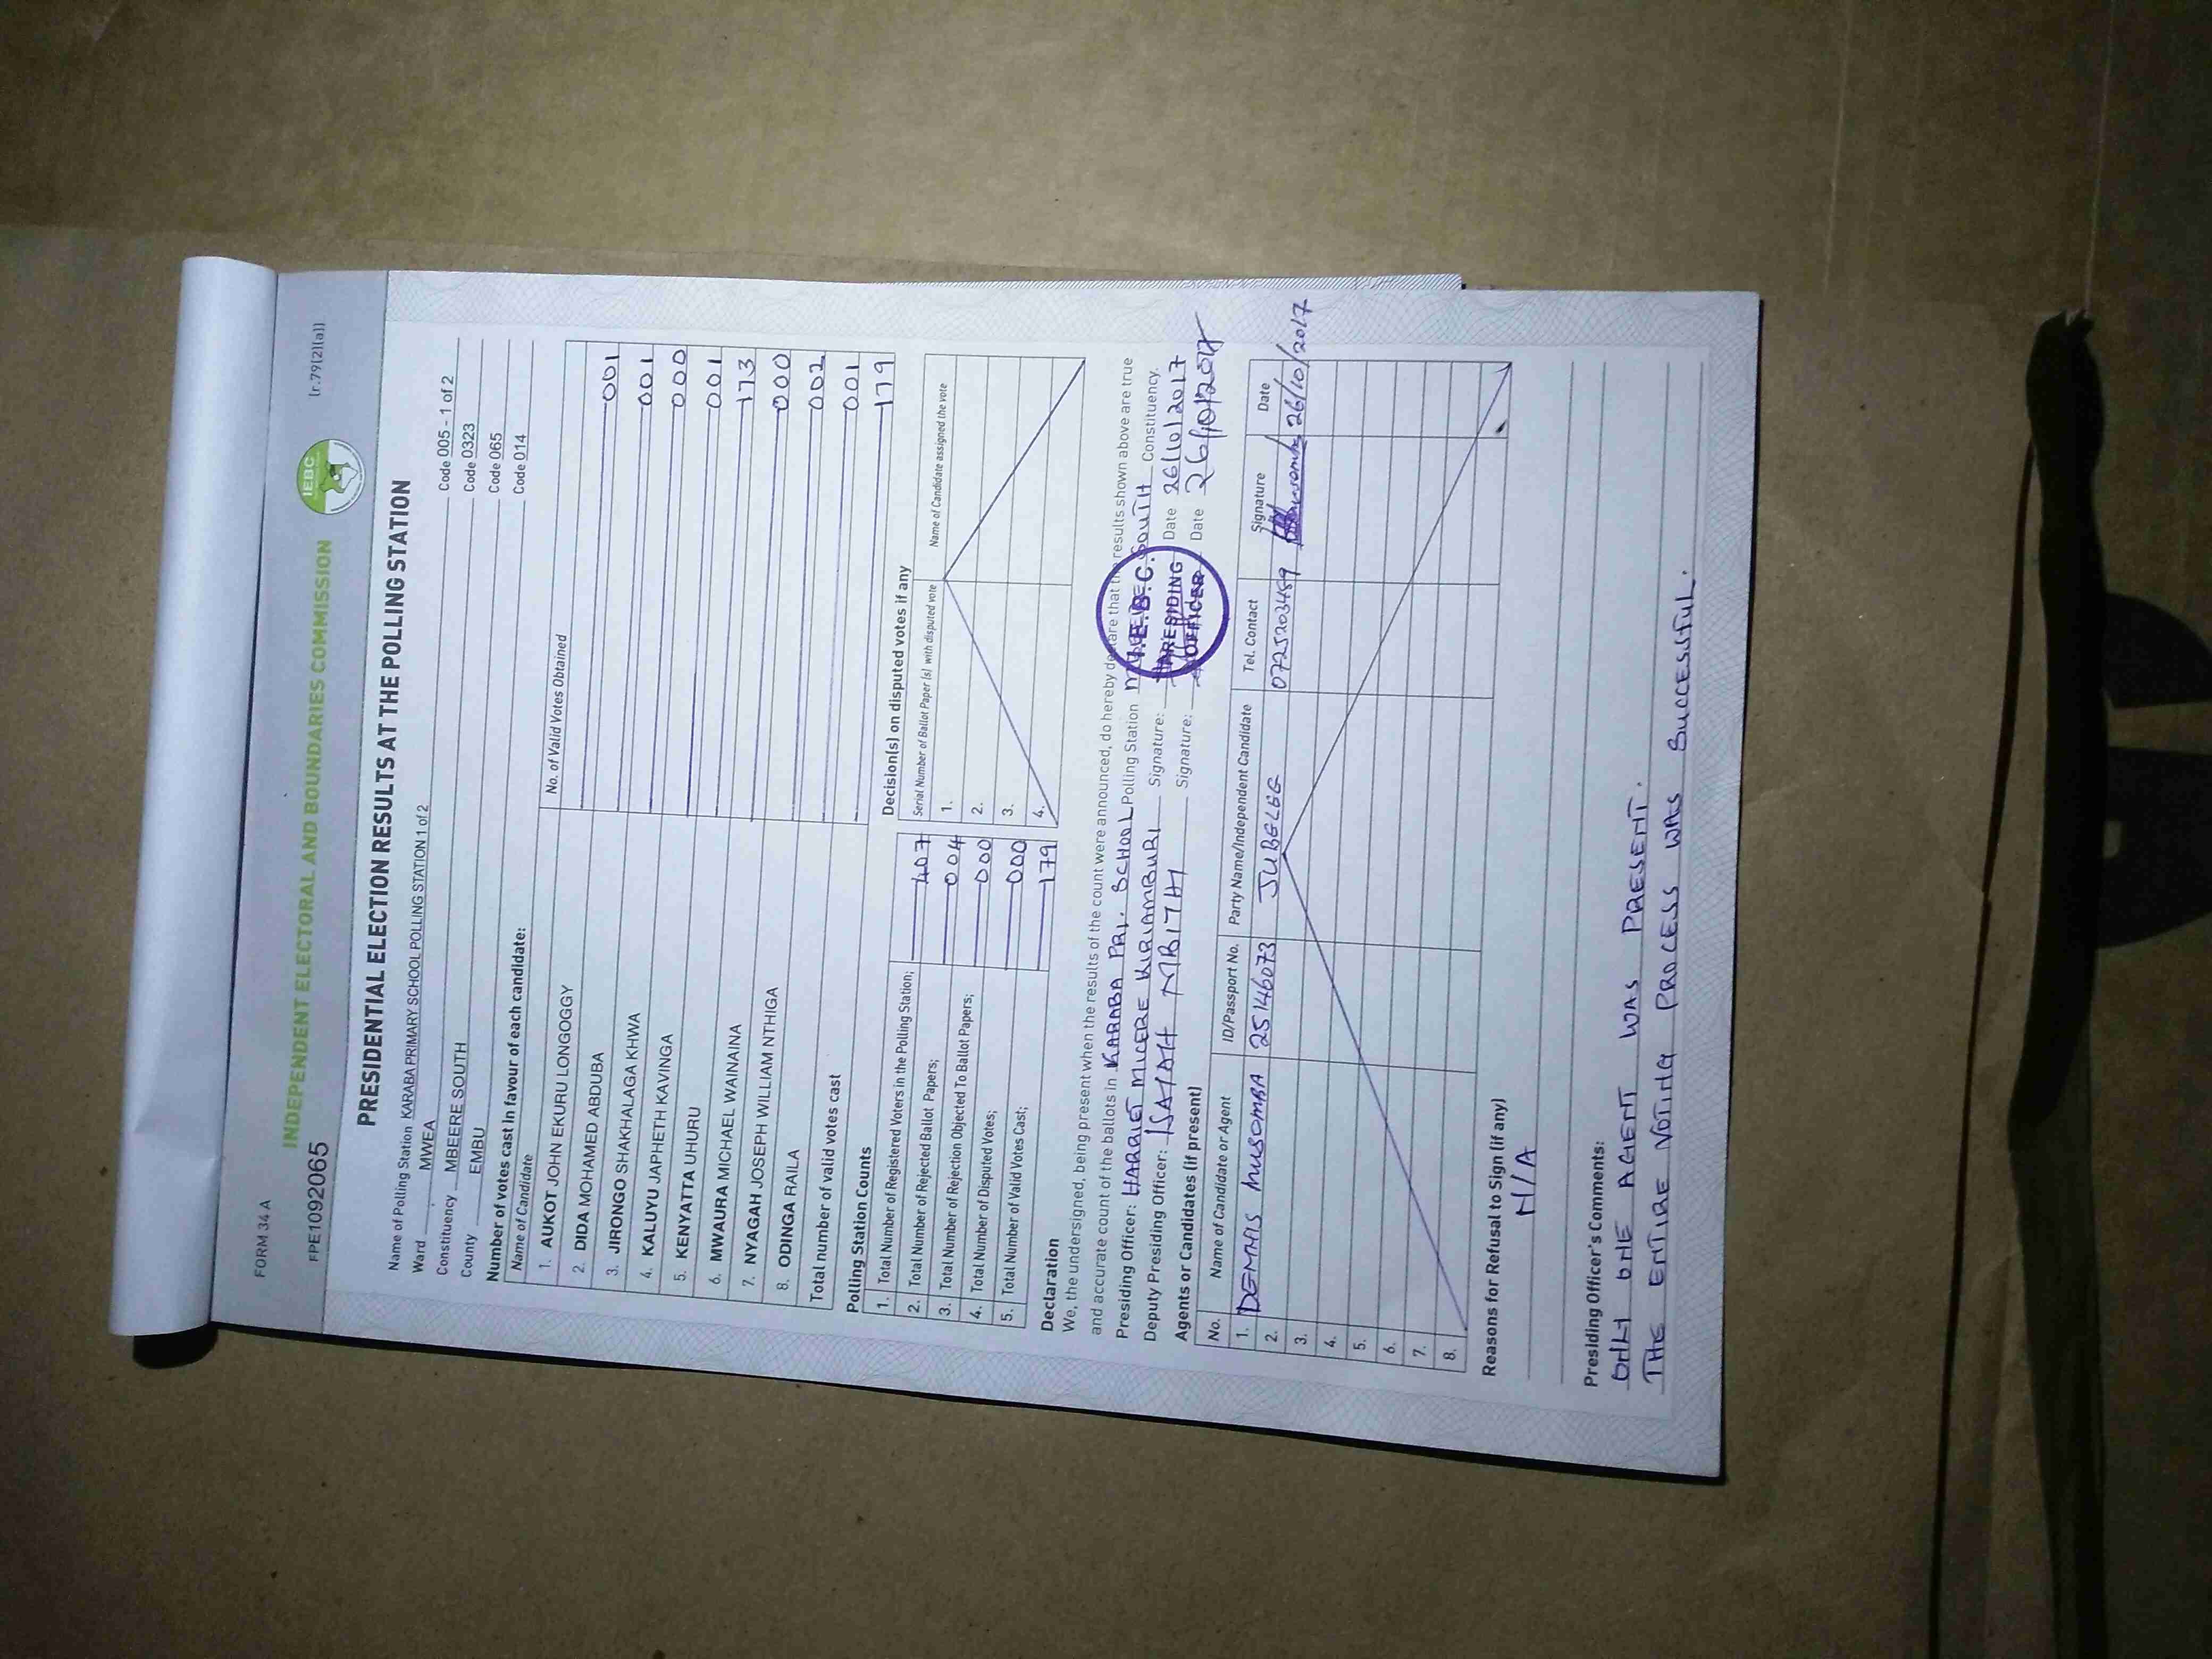 FORM 34 A
(r.79(2)(a))
INDEPENDENT ELECTORAL AND BOUNDARIES COMMISSION
IEBC
FPE1092065
PRESIDENTIAL ELECTION RESULTS AT THE POLLING STATION
Name of Polling Station KARABA PRIMARY SCHOOL POLLING STATION 1 of 2 Code 005 - 1 of 2
Ward MWEA Code 0323
Constituency MBEERE SOUTH Code 065
County EMBU Code 014
Number of votes cast in favour of each candidate:
Name of Candidate No. of Valid Votes Obtained
1. AUKOT JOHN EKURU LONGOGGY 001
2. DIDA MOHAMED ABDUBA 001
3. JIRONGO SHAKHALAGA KHWA 000
4. KALUYU JAPHETH KAVINGA 001
5. KENYATTA UHURU 173
6. MWAURA MICHAEL WAINAINA 000
7. NYAGAH JOSEPH WILLIAM NTHIGA 002
8. ODINGA RAILA 001
Total number of valid votes cast 179
Polling Station Counts
1. Total Number of Registered Voters in the Polling Station; 407
2. Total Number of Rejected Ballot Papers; 004
3. Total Number of Rejection Objected To Ballot Papers; 000
4. Total Number of Disputed Votes; 000
5. Total Number of Valid Votes Cast; 179
Decision(s) on disputed votes if any
Serial Number of Ballot Paper (s) with disputed vote Name of Candidate assigned the vote
1.
2.
3.
4.
Declaration
We, the undersigned, being present when the results of the count were announced, do hereby declare that the results shown above are true
and accurate count of the ballots in KARABA PRI. SCHOOL Polling Station MBEERE SOUTH Constituency.
Presiding Officer: HARRIET MICERE KIRIAMBURI Signature: Date 26/10/2017
Deputy Presiding Officer: ISAIAH MBITHI Signature: Date 26/10/2017
I.E.B.C.
PRESIDING
OFFICER
Agents or Candidates (if present)
No. Name of Candidate or Agent ID/Passport No. Party Name/Independent Candidate Tel. Contact Signature Date
1. DEMAS MUSOMBA 25146073 JUBELEG 0725203459 26/10/2017
2.
3.
4.
5.
6.
7.
8.
Reasons for Refusal to Sign (if any)
N/A
Presiding Officer's Comments:
ONLY ONE AGENT WAS PRESENT.
THE ENTIRE VOTING PROCESS WAS SUCCESSFUL.